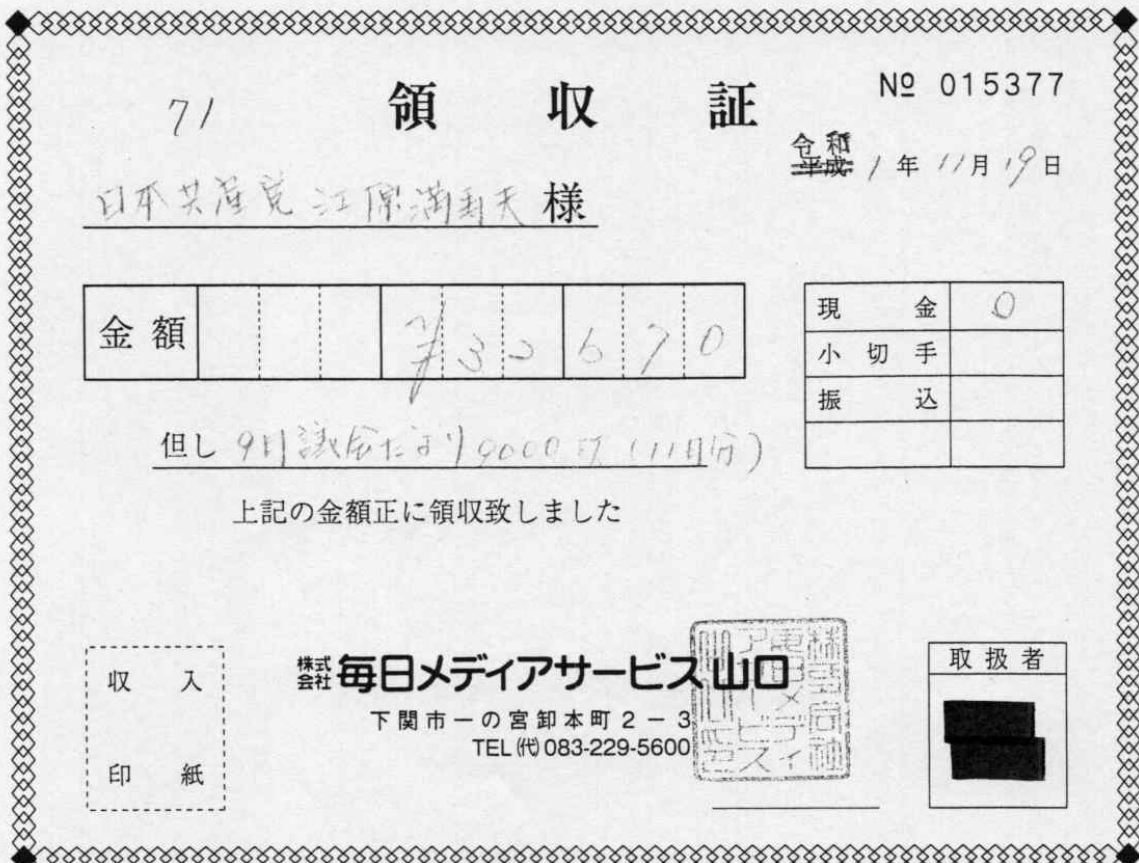 71
領収証
№ 015377
令和
平成 1年 11月 19日
日本共産党 江原満寿夫 様
金額 ¥32670
現金 0
小切手
振込
但し 9月議会だより9000枚(11月分)
上記の金額正に領収致しました
収入
印紙
株式会社 毎日メディアサービス山口
下関市一の宮卸本町2-3
TEL(代)083-229-5600
取扱者